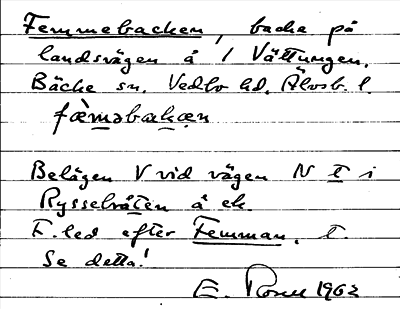 Femmebacken, backe på
landsvägen å 1 Vättungen.
Bäcke sn. Vedbo hd. Älvsb. l.
fæ̀məbakæn
Belägen V vid vägen N T i
Rysselråten å ek.
F.led efter Femman. T.
Se detta!
E. 1962